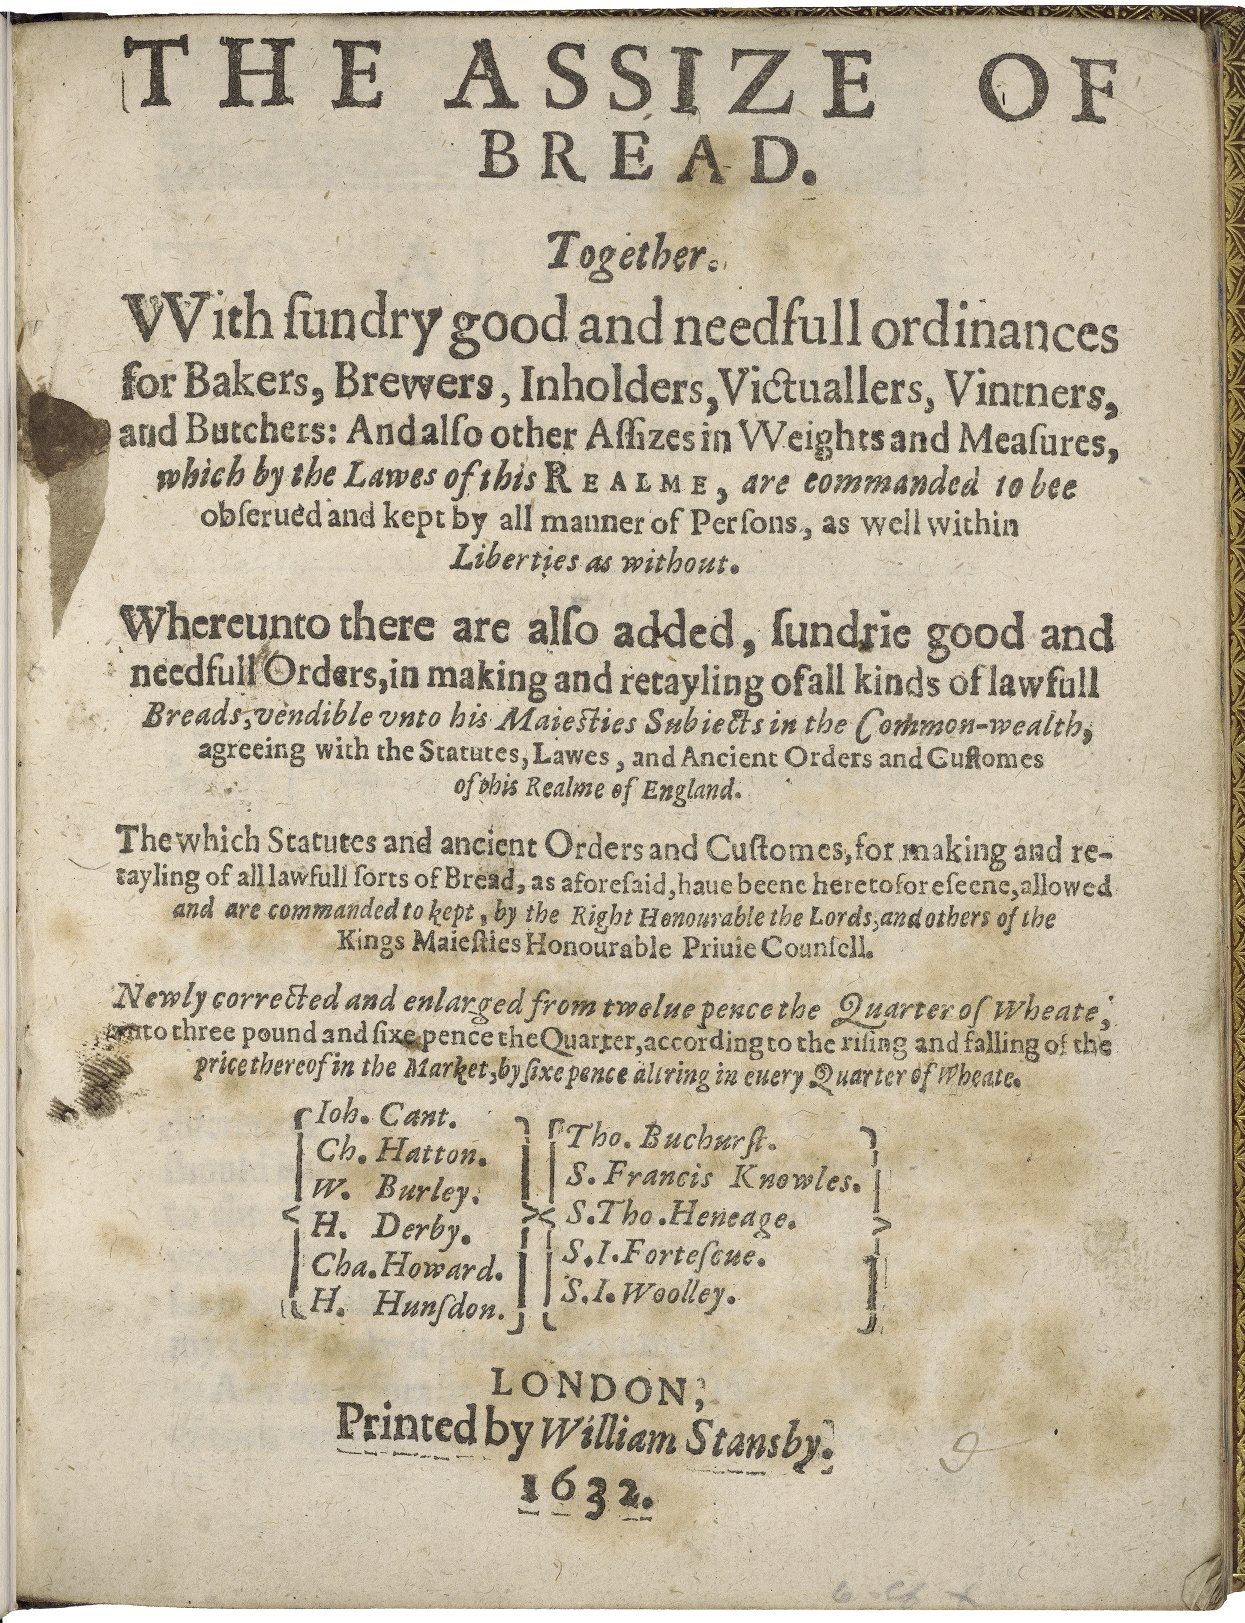 THE ASSIZE OF
BREAD.
Together.
VVith ſundry good and needfull ordinances
for Bakers, Brewers, Inholders, Victuallers, Vintners,
and Butchers: And alſo other Aſſizes in VVeights and Meaſures,
which by the Lawes of this REALME, are commanded to bee
obſerued and kept by all manner of Perſons, as well within
Liberties as without.
Whereunto there are alſo added, ſundrie good and
needfull Orders, in making and retayling of all kinds of lawfull
Breads, vendible vnto his Maieſties Subiects in the Common-wealth,
agreeing with the Statutes, Lawes, and Ancient Orders and Cuſtomes
of this Realme of England.
The which Statutes and ancient Orders and Cuſtomes, for making and re-
tayling of all lawfull ſorts of Bread, as aforeſaid, haue beene heretofore ſeene, allowed
and are commanded to kept, by the Right Honourable the Lords, and others of the
Kings Maieſties Honourable Priuie Counſell.
Newly corrected and enlarged from twelue pence the Quarter of Wheate,
vnto three pound and ſixe pence the Quarter, according to the riſing and falling of the
price thereof in the Market, by ſixe pence altring in euery Quarter of Wheate.
Ioh. Cant.
Ch. Hatton.
W. Burley.
H. Derby.
Cha. Howard.
H. Hunſdon.
Tho. Buchurſt.
S. Francis Knowles.
S. Tho. Heneage.
S. I. Forteſcue.
S. I. Woolley.
LONDON,
Printed by William Stansby.
1632.